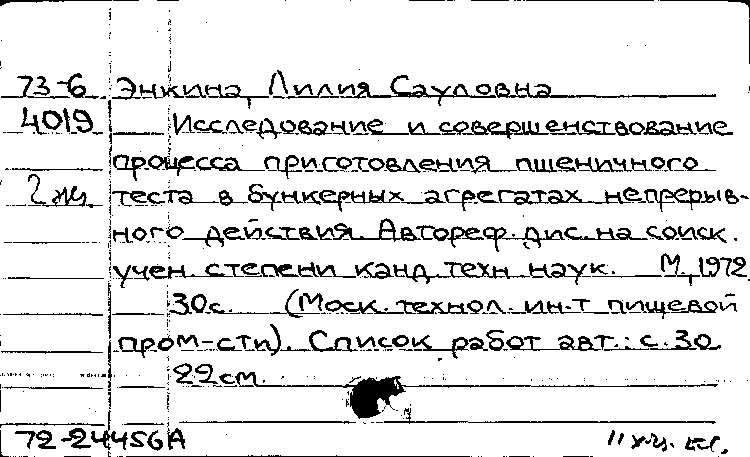 73-6 Энкина, Лилия Сауловна
4019 Исследование и совершенствование
процесса приготовления пшеничного
2 экз. теста в бункерных агрегатах непрерыв-
ного действия. Автореф. дис. на соиск.
учен. степени канд. техн. наук. М., 1972
30с. (Моск. технол. ин-т пищевой
пром-сти). Список работ авт.: с. 30
22см.
72-24456А